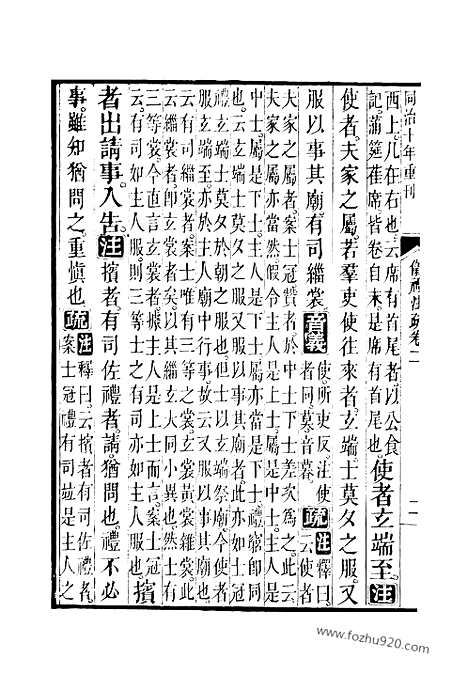 同治十年重刊　儀禮注疏卷二　二
西上几在右也云席有首尾者以公食
記蒲筵萑席皆卷自末是席有首尾也
使者玄端至。注
使者。夫家之屬。若羣吏使往來者。玄端。士莫夕之服。又
服以事其廟。有司緇裳。音義
使。所吏反。注使
者同。莫。音暮。
疏注
釋曰。
云使者
夫家之屬者。案士冠贊者。於中士下士差次爲之。此云
夫家之屬亦當然。假令主人是上士。屬是中士。主人是
中士。屬是下士。主人是下士。屬亦當是下士。禮窮即同
也。云玄端士莫夕之服又服以事其廟者。此亦如士冠
禮玄端士莫夕於朝之服也。但士以玄端祭廟。今使者
服玄端至。亦於主人廟中行事。故云又服以事其廟也。
云有司緇裳者。案士唯有三等之裳。玄裳黃裳雜裳。此
云緇裳者。即玄裳者矣。以其緇玄大同小異也。然士有
三等裳。今直言玄裳者。據主人是上士而言。案士冠
云有司如主人服。則三等士之有司亦如主人服也。
擯
者出請事。入告。注擯者。有司佐禮者。請。猶問也。禮不必
事。雖知猶問之。重慎也。疏注
釋曰。云擯者有司佐禮者。
案士冠禮有司並是主人之
www.fozhu920.com